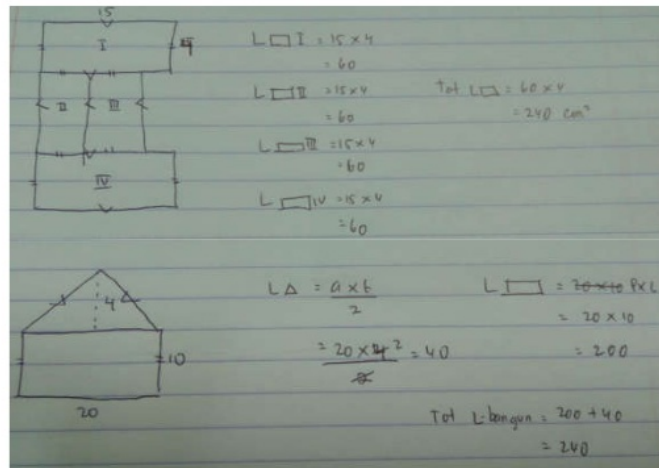 15
I
4
II III
IV
L □ I = 15 x 4
= 60
L □ II = 15 x 4
= 60
L □ III = 15 x 4
= 60
L □ IV = 15 x 4
= 60
Tot L □ = 60 x 4
= 240 cm²
4
10
20
L Δ = a x t / 2
= 20 x 4 2 / 2 = 40
L □ = 20 x 10 P x L
= 20 x 10
= 200
Tot L. bangun = 200 + 40
= 240